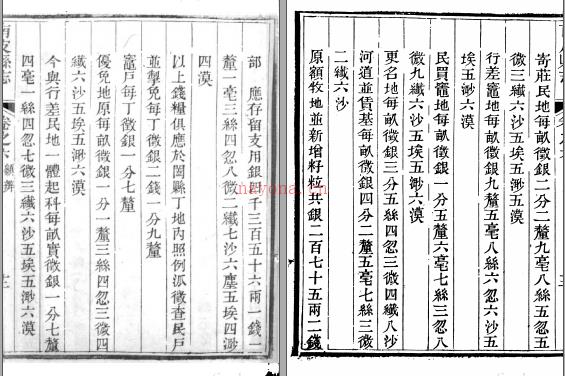 寄莊民地每畝徵銀二分二釐九毫八絲五忽五
微三纖六沙五埃五渺五漠
行差竈地每畝徵銀五釐五毫八絲六忽六沙五
埃五渺六漠
民買竈地每畝徵銀一分五釐六毫七絲三忽八
微九纖六沙五埃五渺六漠
更名地每畝徵銀三分五絲四忽三微四纖八沙
河道並賃基每畝徵銀四分二釐五毫七絲三微
二纖六沙
原額牧地並新增籽粒共銀二百七十五兩一錢
部 應存留支用銀四千三百五十六兩一錢二
釐一毫三絲四忽八微二纖七沙六塵五埃四渺
四漠
以上錢糧俱應於闔縣丁地內照例派徵查民戶
並掣免每丁徵銀二錢一分九釐
竈戶每丁徵銀一分七釐
優免地原每畝徵銀一分一釐三絲四忽三微四
纖六沙五埃五渺六漠
今與行差民地一體起科每畝實徵銀一分七釐
四毫一絲四忽七微三纖六沙五埃五渺六漠
南皮縣志
卷之六
十三
nayona.cn